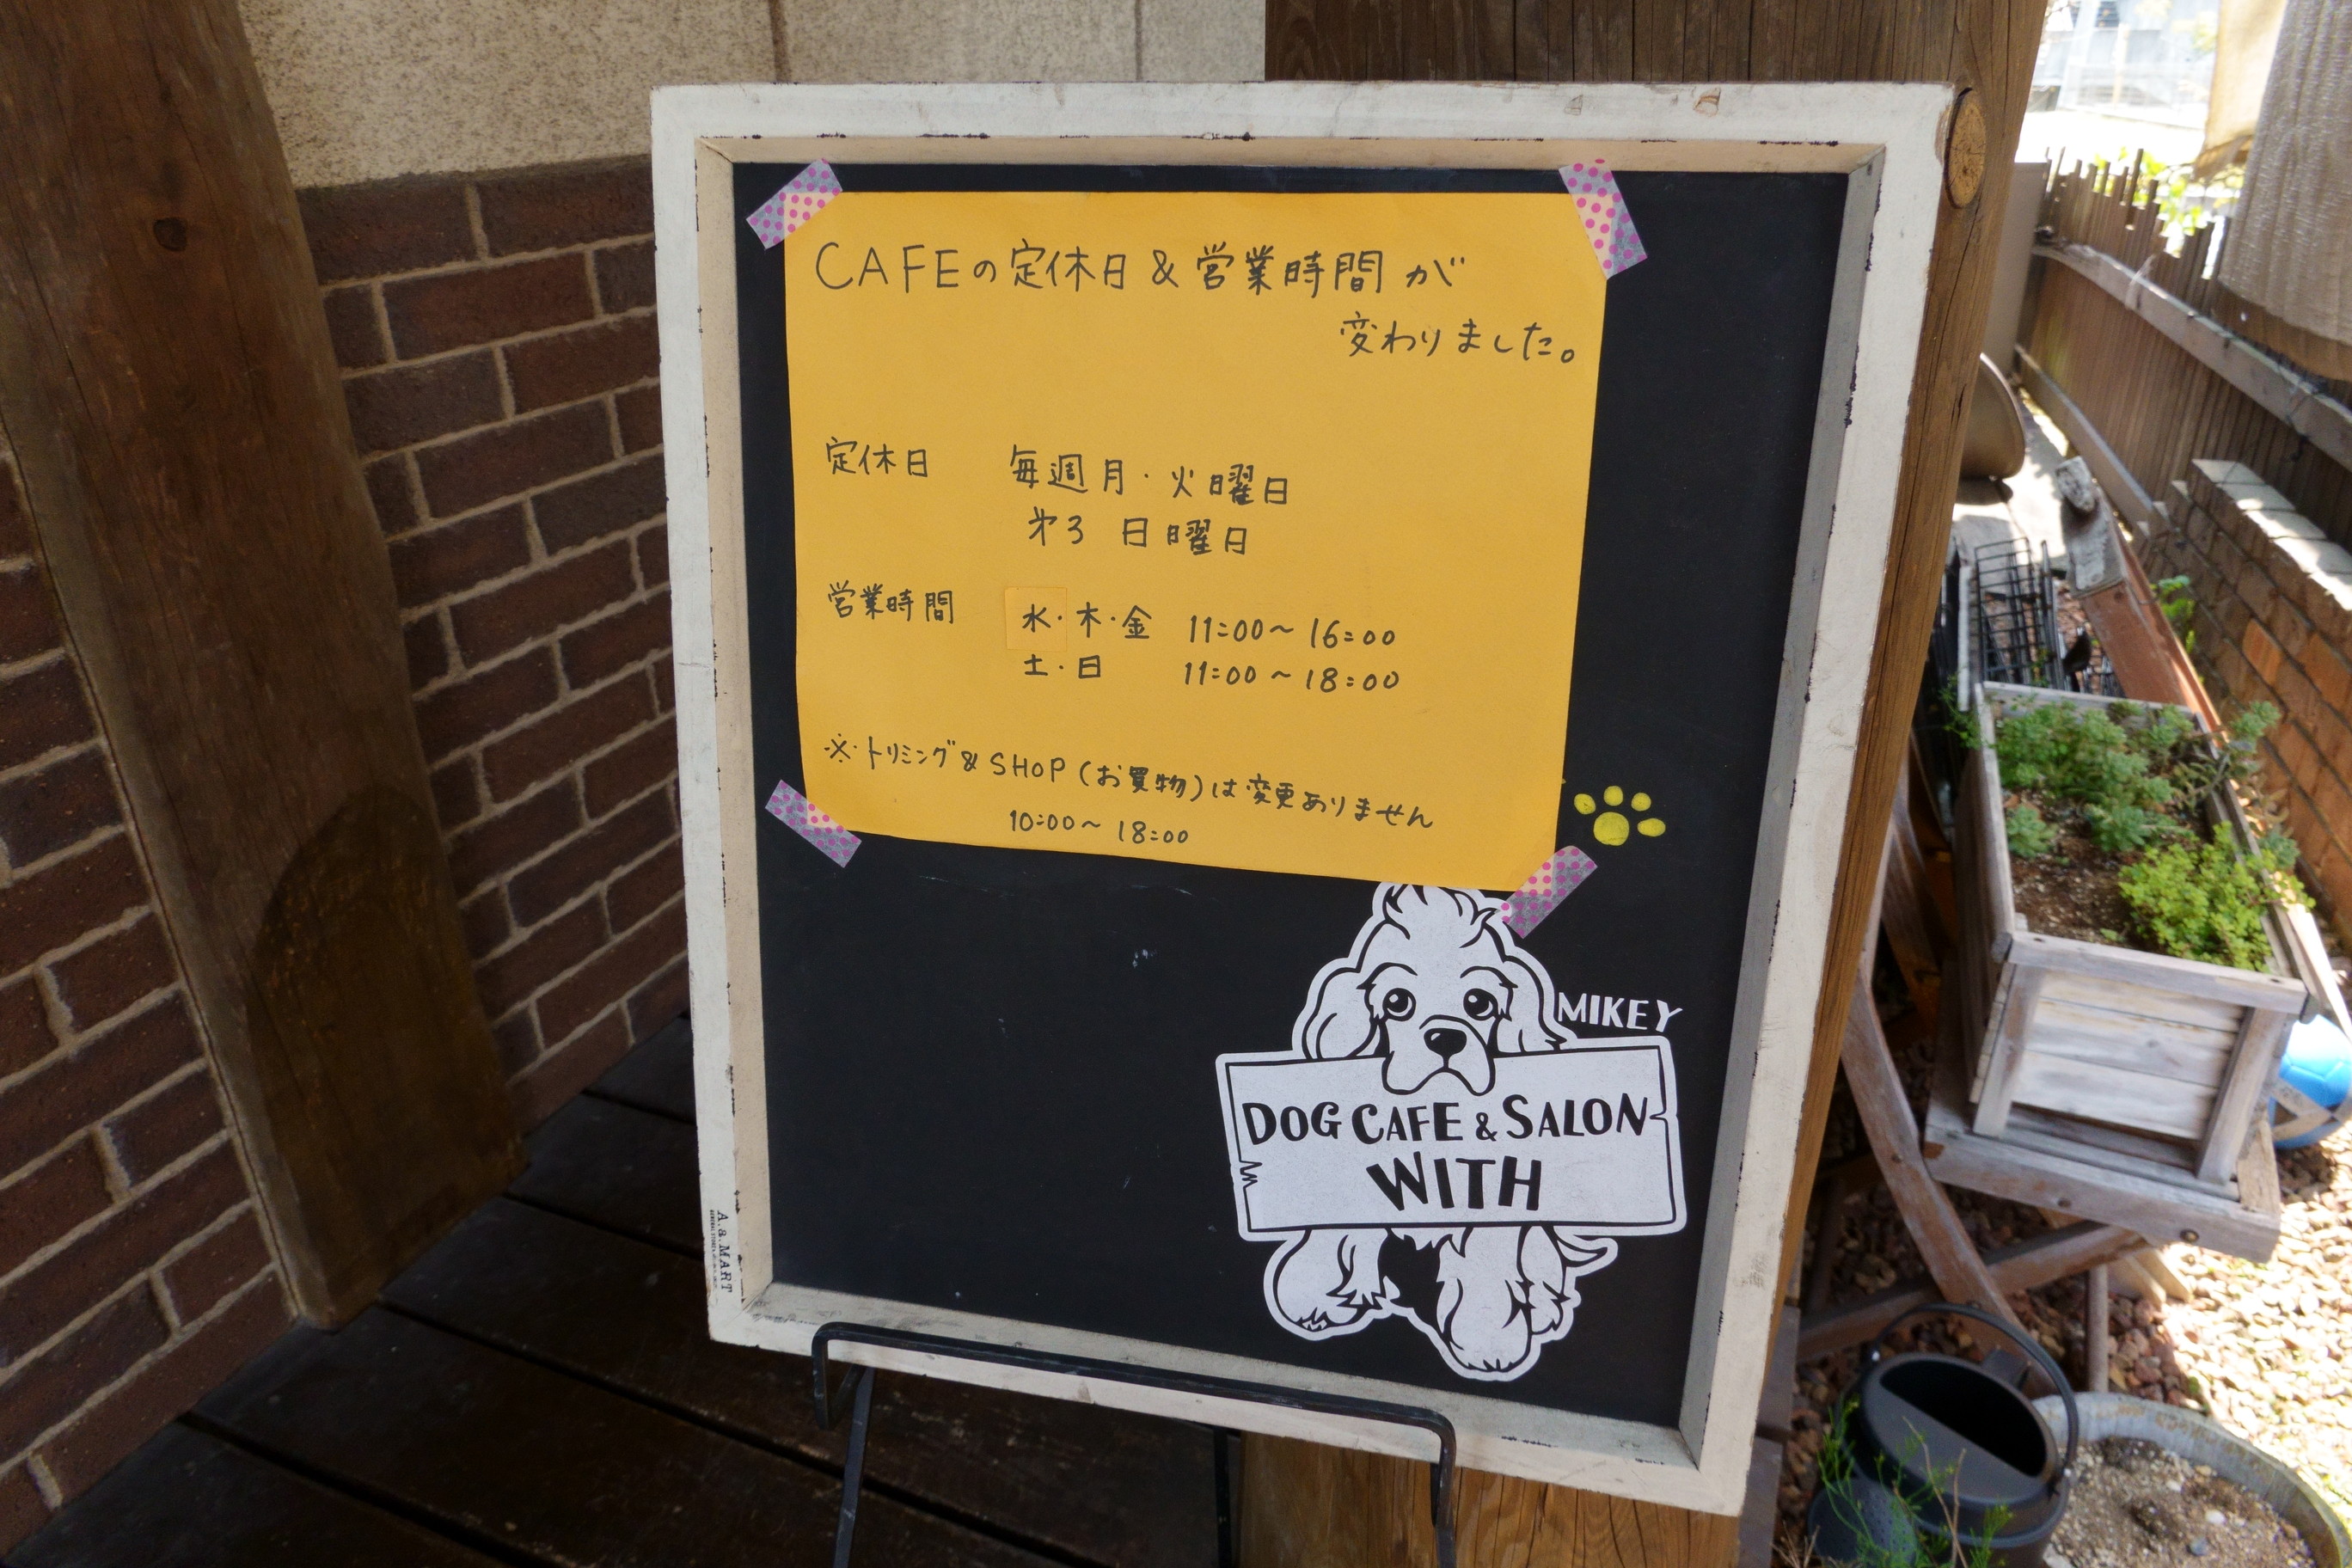 CAFEの定休日&営業時間が
変わりました。
定休日 毎週月・火曜日
第3 日曜日
営業時間 水・木・金 11:00〜16:00
土・日 11:00〜18:00
※トリミング&SHOP(お買物)は変更ありません
10:00〜18:00
MIKEY
DOG CAFE & SALON
WITH
A.a.MART